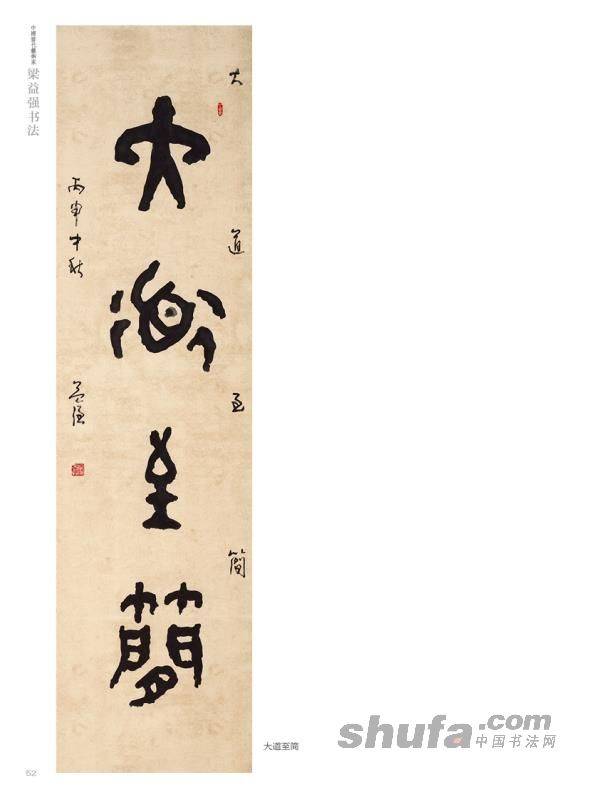 中國當代藝術家
梁益强书法
大道至簡
大道至簡
丙申中秋
益强
大道至简
shufa.com
中国书法网
52